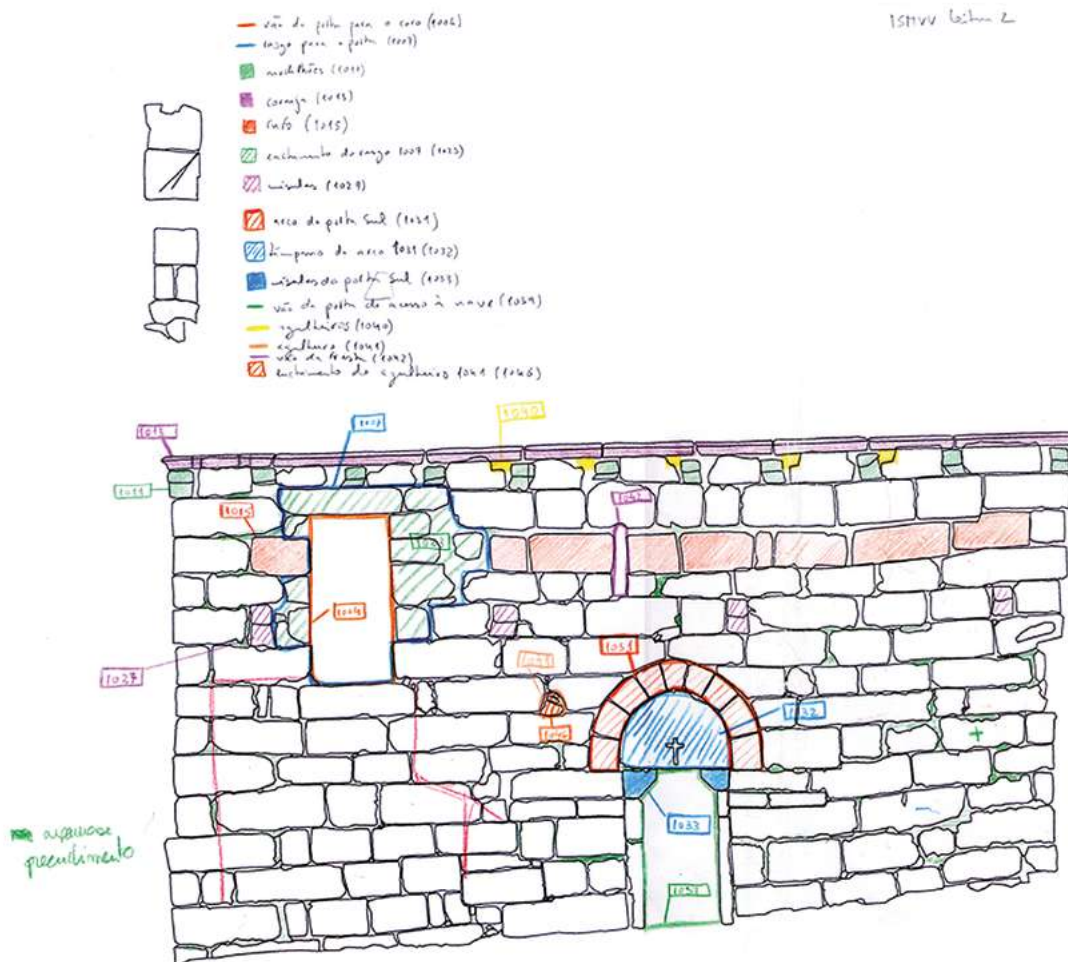 ISMVV leitura 2
vão da porta para o coro (1004)
rasgo para a porta (1007)
modilhões (1011)
cornija (1013)
rufo (1015)
enchimento do rasgo 1007 (1023)
mísulas (1027)
arco da porta Sul (1031)
tímpano do arco 1031 (1032)
mísulas da porta Sul (1033)
vão da porta de acesso à nave (1039)
agulheiros (1040)
agulheiro (1041)
vão da fresta (1042)
enchimento do agulheiro 1041 (1046)
1040
1007
1013
1011
1015
1042
1004
1031
1027
1032
1033
preenchimento